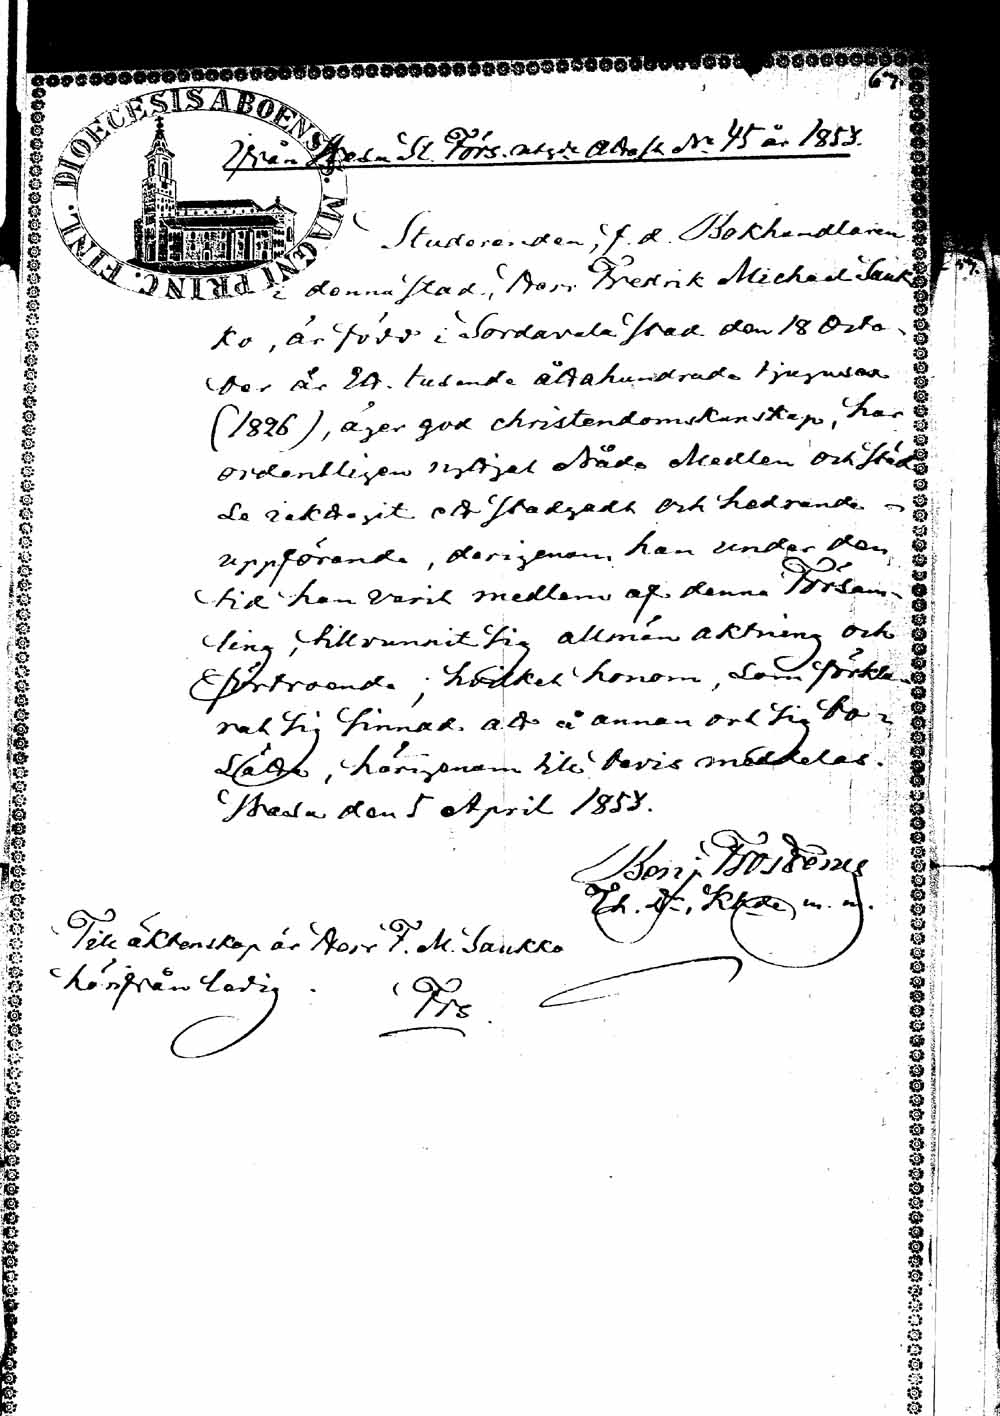 67.
DIOECESIS ABOENS. MAGNI PRINC. FINL.
Ifrån Wasa St. Förs. utgte Attest No 45 år 1853.
Studeranden, f. d. Bokhandlaren
i denna stad, Herr Fredrik Michael Sauk-
ko, är född i Sordavala stad den 18 Octo-
ber år Ett tusende åttahundrade tjugusex
(1826), äger god christendomskunskap, har
ordentligen nytjat Nåde Medlen och städ
se iakttagit ett stadgadt och hedrande
uppförande, derigenom han under den
tid han varit medlem af denna Försam-
ling, tillvunnit sig allmän aktning och
förtroende; hvilket honom, som förkla-
rat sig sinnad att å annan ort sig bo-
sätta, härigenom till bevis meddelas.
Wasa den 5 April 1853.
Benj. Frosterus
Th. Dr, Khde m. m.
Till äktenskap är Herr F. M. Saukko
härifrån ledig.
Frs.